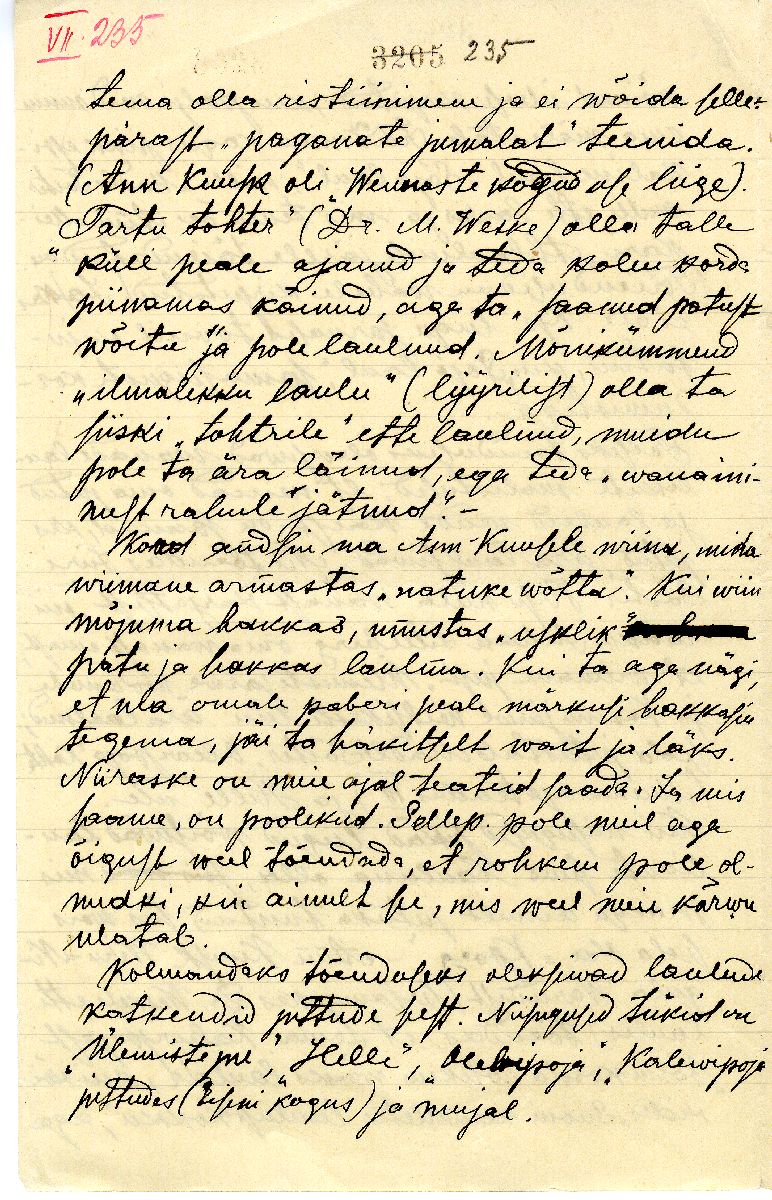 VII. 235
3205 235
tema olla ristiinimene ja ei wõida selle-
pärast „paganate jumalat" teenida.
(Ann Kuusk oli Wennaste koguduse liige).
„Tartu tohter" (Dr. M. Weske) olla talle
küll peale ajanud ja teda kolm korda
piinamas käinud, aga ta „saanud patust
wõitu" ja pole laulnud. Mõnikümmend
„ilmalikku laulu" (lüürilist) olla ta
siiski „tohtrile" ette laulnud, muidu
pole ta ära läinud, ega teda „wanaini-
mest rahule jätnud". –
andsin ma Ann Kuusele wiina, mida
wiimane armastas „natuke wõtta". Kui wiin
mõjuma hakkas, unustas „usklik"
patu ja hakkas laulma. Kui ta aga nägi,
et ma omale paberi peale märkusi hakkasin
tegema, jäi ta häkitselt wait ja läks.
Niiraske on meie ajal teateid saada. Ja mis
saame, on poolikud. Sellep. pole meil aga
õigust weel tõendada, et rohkem pole ol-
nudki, kui ainult se, mis weel meie kõrwu
ulatab.
Kolmandaks tõenduseks oleksiwad laulude
katkendid juttude sest. Niisugused tükid on
„Ülemiste " , „Helle", „Olewipoja", „Kalewipoja
juttudes (Eiseni kogus) ja mujal.